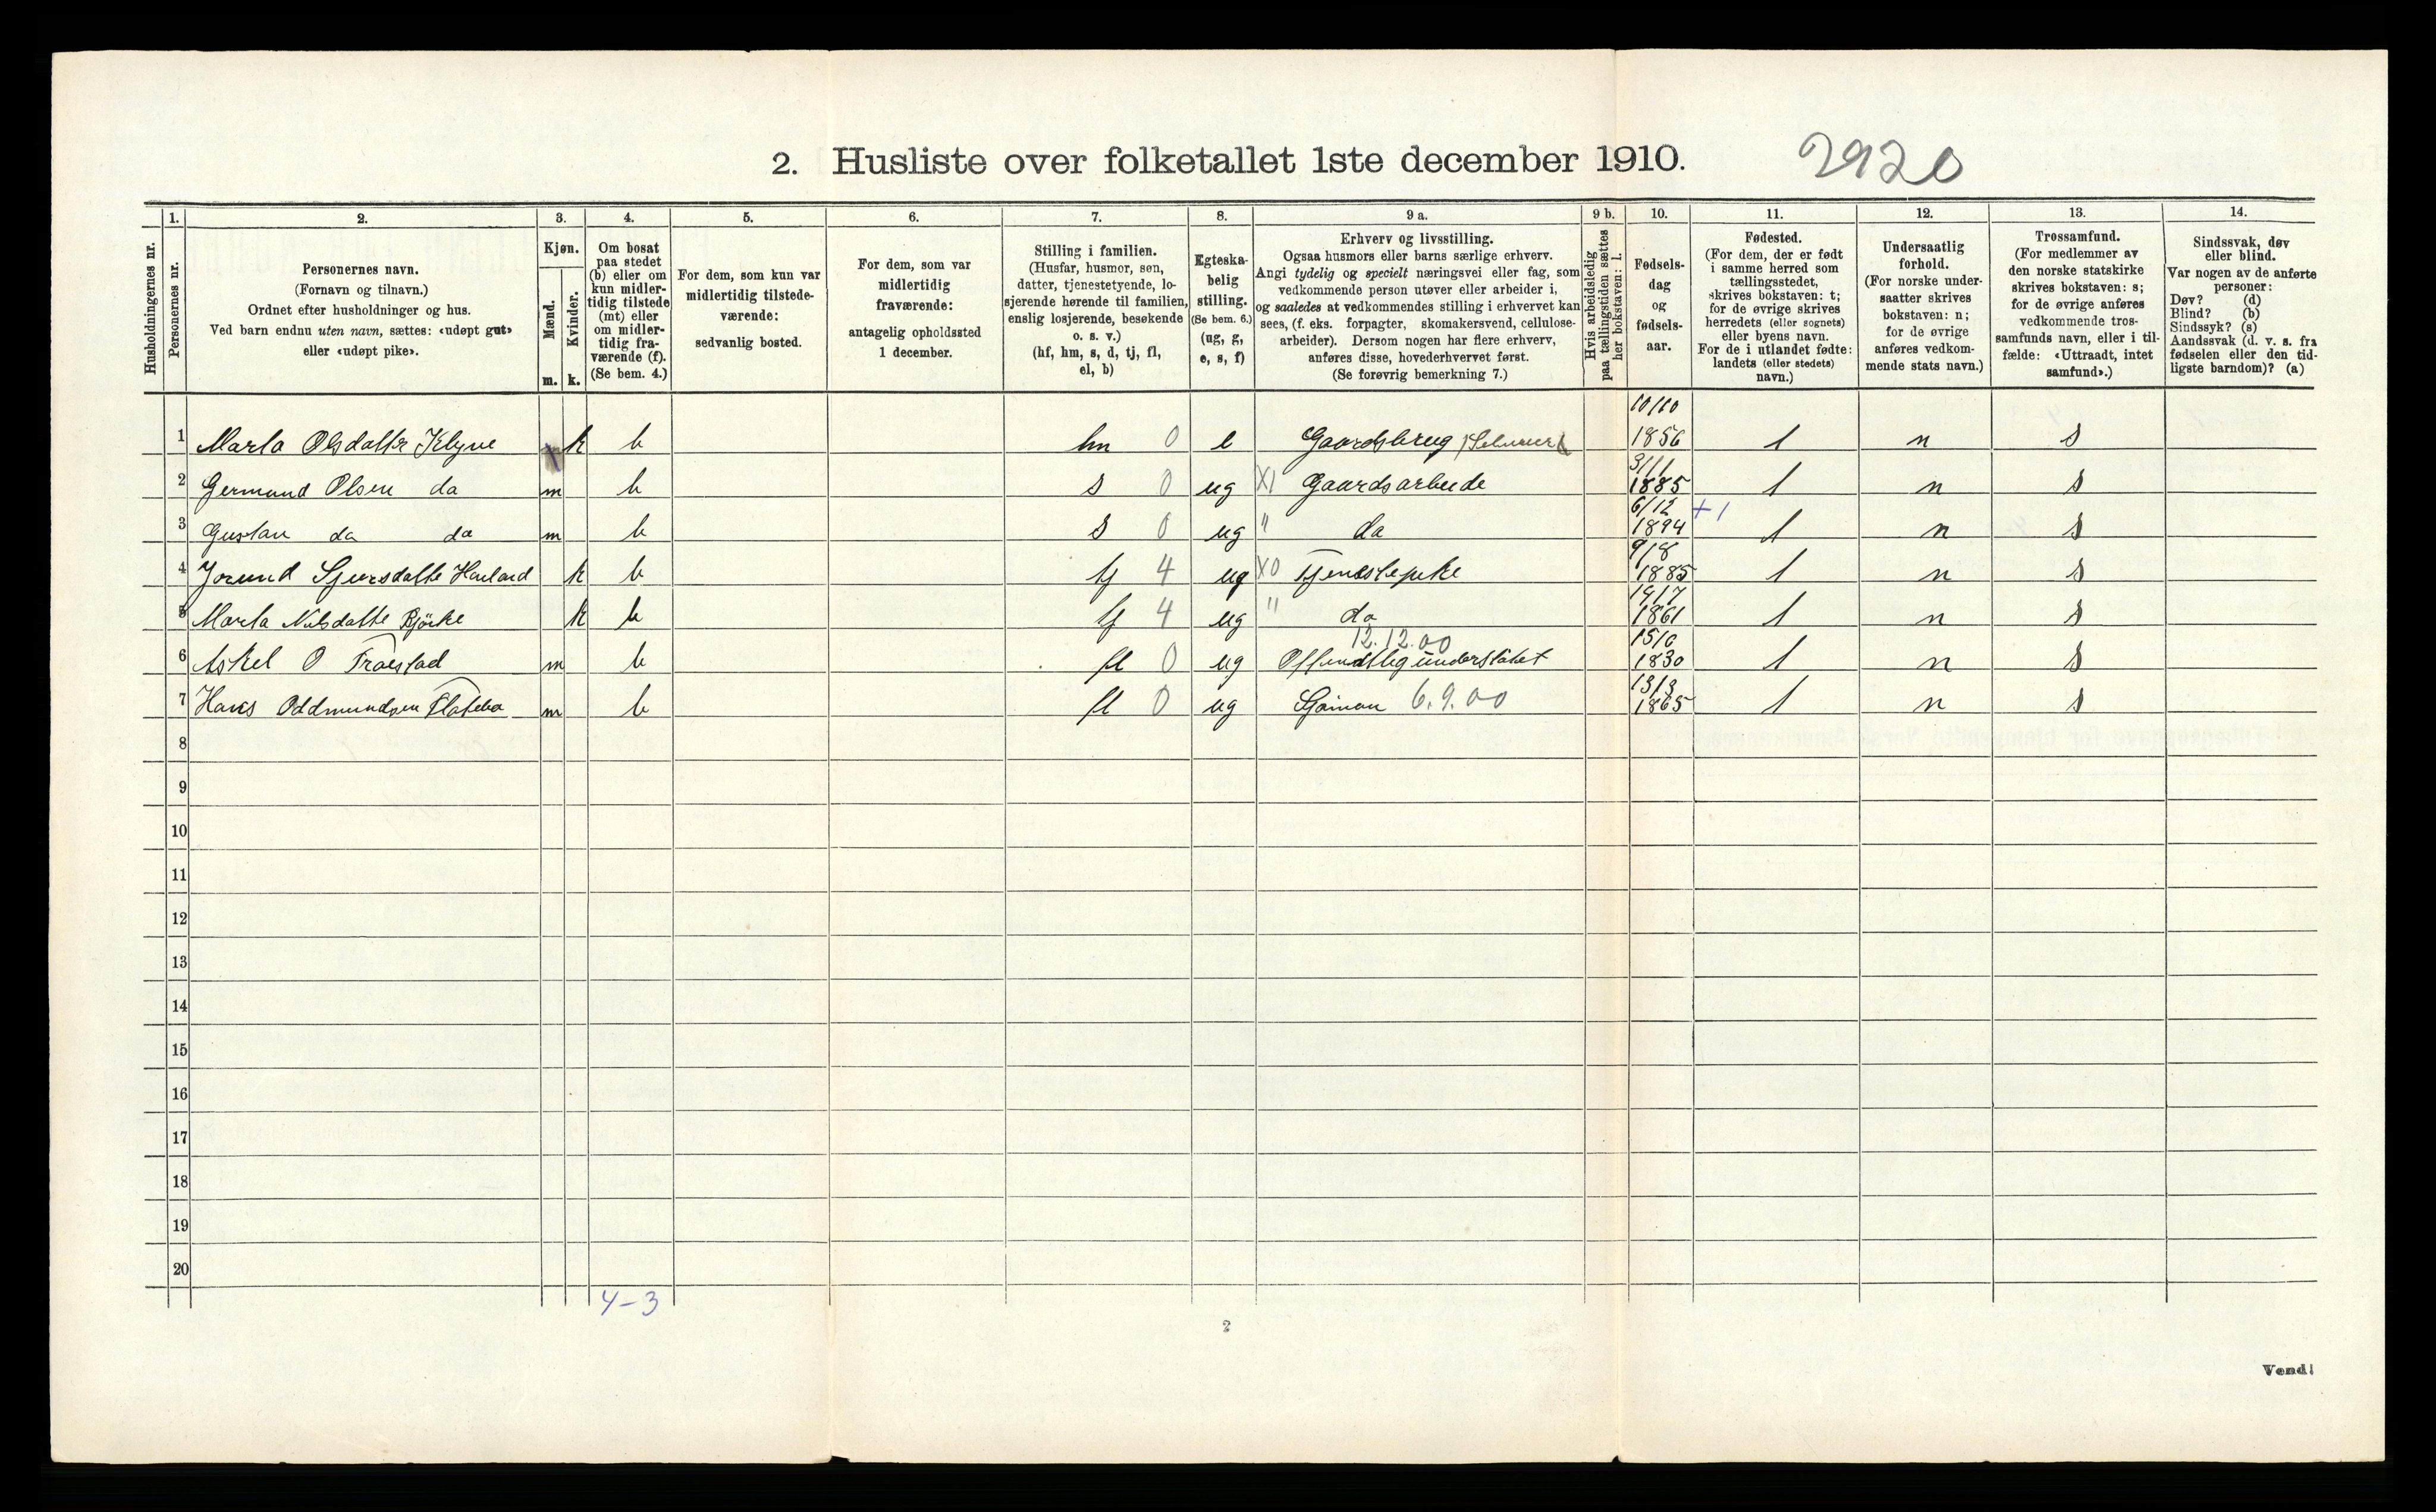 2. Husliste over folketallet 1ste december 1910. 2920
1. 2. 3. 4. 5. 6. 7. 8. 9 a. 9 b. 10. 11. 12. 13. 14.
Husholdningernes nr.
Personernes nr.
Personernes navn.
(Fornavn og tilnavn.)
Ordnet efter husholdninger og hus.
Ved barn endnu uten navn, sættes: «udøpt gut»
eller «udøpt pike».
Kjøn.
Mænd.
Kvinder.
m. k.
Om bosat
paa stedet
(b) eller om
kun midler-
tidig tilstede
(mt) eller
om midler-
tidig fra-
værende (f).
(Se bem. 4.)
For dem, som kun var
midlertidig tilstede-
værende:
sedvanlig bosted.
For dem, som var
midlertidig
fraværende:
antagelig opholdssted
1 december.
Stilling i familien.
(Husfar, husmor, søn,
datter, tjenestetyende, lo-
sjerende hørende til familien,
enslig losjerende, besøkende
o. s. v.)
(hf, hm, s, d, tj, fl,
el, b)
Egteska-
belig
stilling.
(Se bem. 6.)
(ug, g,
e, s, f)
Erhverv og livsstilling.
Ogsaa husmors eller barns særlige erhverv.
Angi tydelig og specielt næringsvei eller fag, som
vedkommende person utøver eller arbeider i,
og saaledes at vedkommendes stilling i erhvervet kan
sees, (f. eks. forpagter, skomakersvend, cellulose-
arbeider). Dersom nogen har flere erhverv,
anføres disse, hovederhvervet først.
(Se forøvrig bemerkning 7.)
Hvis arbeidsledig
paa tællingstiden sættes
her bokstaven: l.
Fødsels-
dag
og
fødsels-
aar.
Fødested.
(For dem, der er født
i samme herred som
tællingsstedet,
skrives bokstaven: t;
for de øvrige skrives
herredets (eller sognets)
eller byens navn.
For de i utlandet fødte:
landets (eller stedets)
navn.)
Undersaatlig
forhold.
(For norske under-
saatter skrives
bokstaven: n;
for de øvrige
anføres vedkom-
mende stats navn.)
Trossamfund.
(For medlemmer av
den norske statskirke
skrives bokstaven: s;
for de øvrige anføres
vedkommende tros-
samfunds navn, eller i til-
fælde: «Uttraadt, intet
samfund».)
Sindssvak, døv
eller blind.
Var nogen av de anførte
personer:
Døv? (d)
Blind? (b)
Sindssyk? (s)
Aandssvak (d. v. s. fra
fødselen eller den tid-
ligste barndom)? (a)
1 Marta Olsdatter Klyve k b hm 0 e Gaardsbrug 10/10 1856 t n s
2 Germund Olsen do m b s 0 ug X1 Gaardsarbeide 3/11 1885 t n s
3 Gustav do do m b s 0 ug " do 6/12 1894 +1 t n s
4 Jorund Sjursdatte Haaland k b tj 4 ug X0 Tjenestepike 9/8 1885 t n s
5 Marta Nilsdatte Björke k b tj 4 ug " do 19/7 1861 t n s
6 Askel O Traestad m b fl 0 ug Offentlig understøttet 12.12.00 15/6 1830 t n s
7 Hans Oddmundsen Flatebø m b fl 0 ug Sjöman 6.9.00 13/3 1865 t n s
8
9
10
11
12
13
14
15
16
17
18
19
20
4-3
2
Vend!